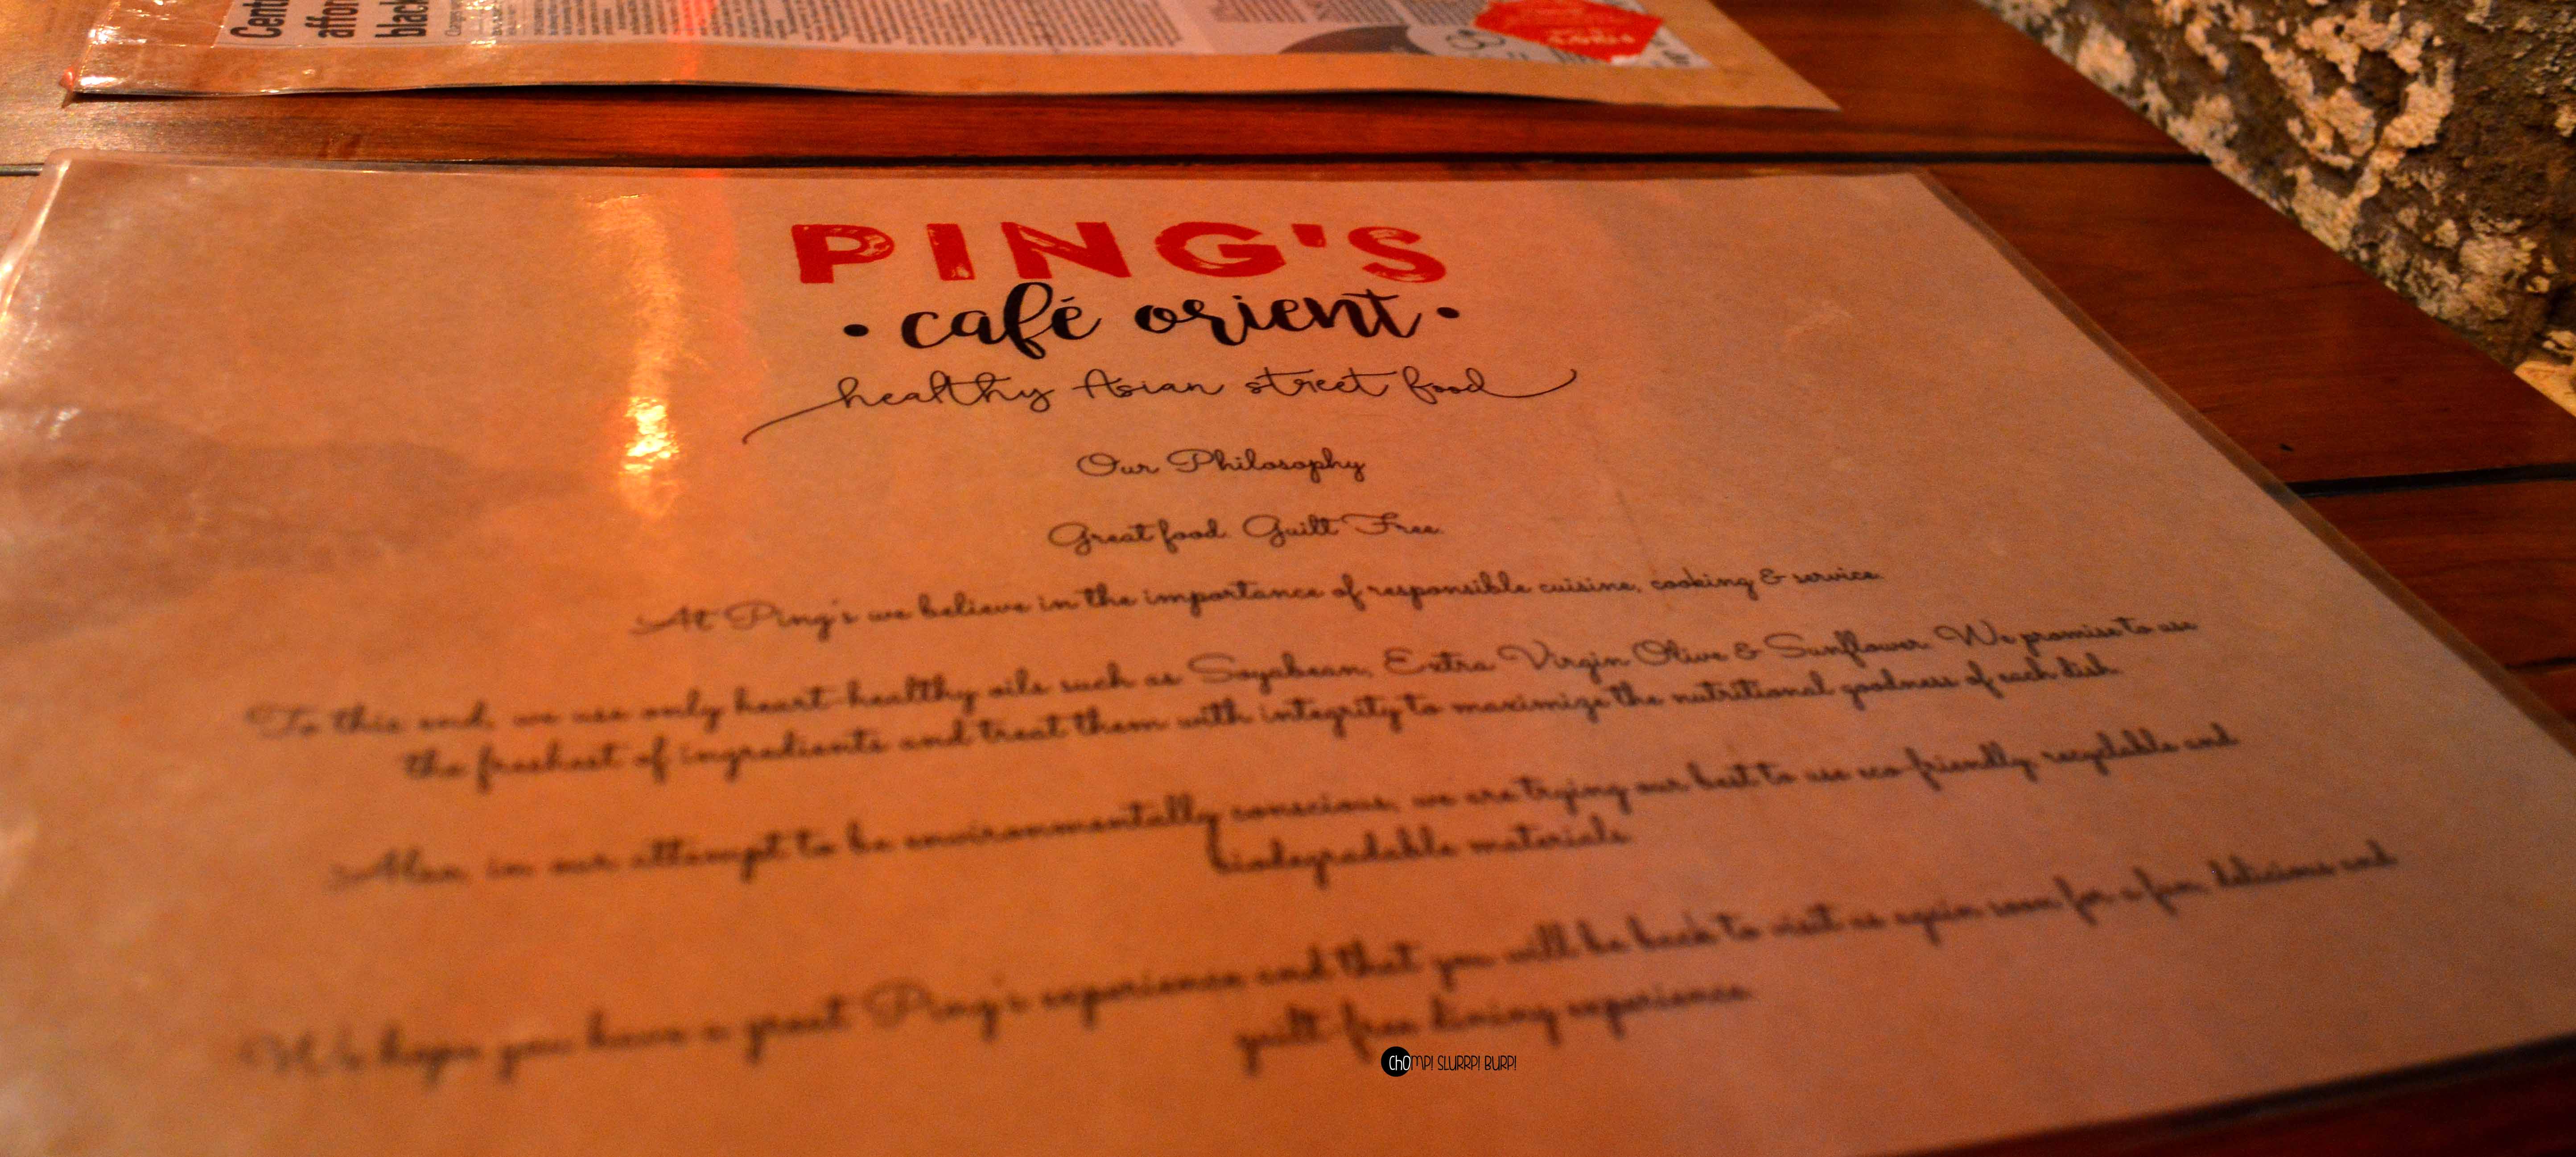 Cent
affor
black
PING'S
• café orient •
healthy Asian street food
Our Philosophy
Great food. Guilt Free.
At Ping's we believe in the importance of responsible cuisine, cooking & service.
To this end, we use only heart-healthy oils such as Soyabean, Extra Virgin Olive & Sunflower. We promise to use
the freshest of ingredients and treat them with integrity to maximize the nutritional goodness of each dish.
Also, in our attempt to be environmentally conscious, we are trying our best to use eco-friendly, recyclable and
biodegradable materials.
We hope you have a great Ping's experience and that you will be back to visit us again soon for a fun, delicious and
guilt-free dining experience.
CHOMP! SLURRP! BURP!